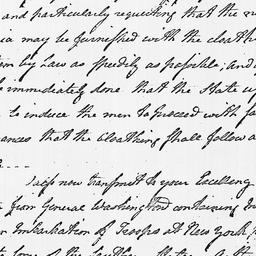 and particularly requesting that the
ia may be furnished with the cloath
em by Law as speedily as possible; and
immediately done that the State
to induce the men to proceed with
ances that the Cloathing shall follow
I also now transmit to your Excellency
from General Washington containing
Embarkation of Troops at New York
some of the Southern States